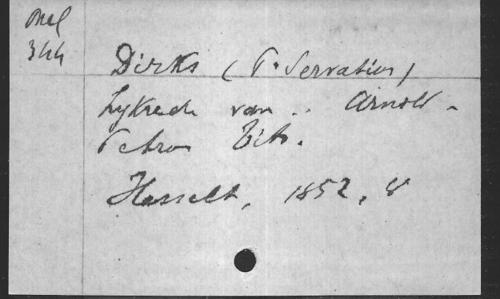 Mel
344
Dirks (P. Servatius)
Lykrede van .. Arnold-
Petrus Bits.
Hasselt, 1852, 8